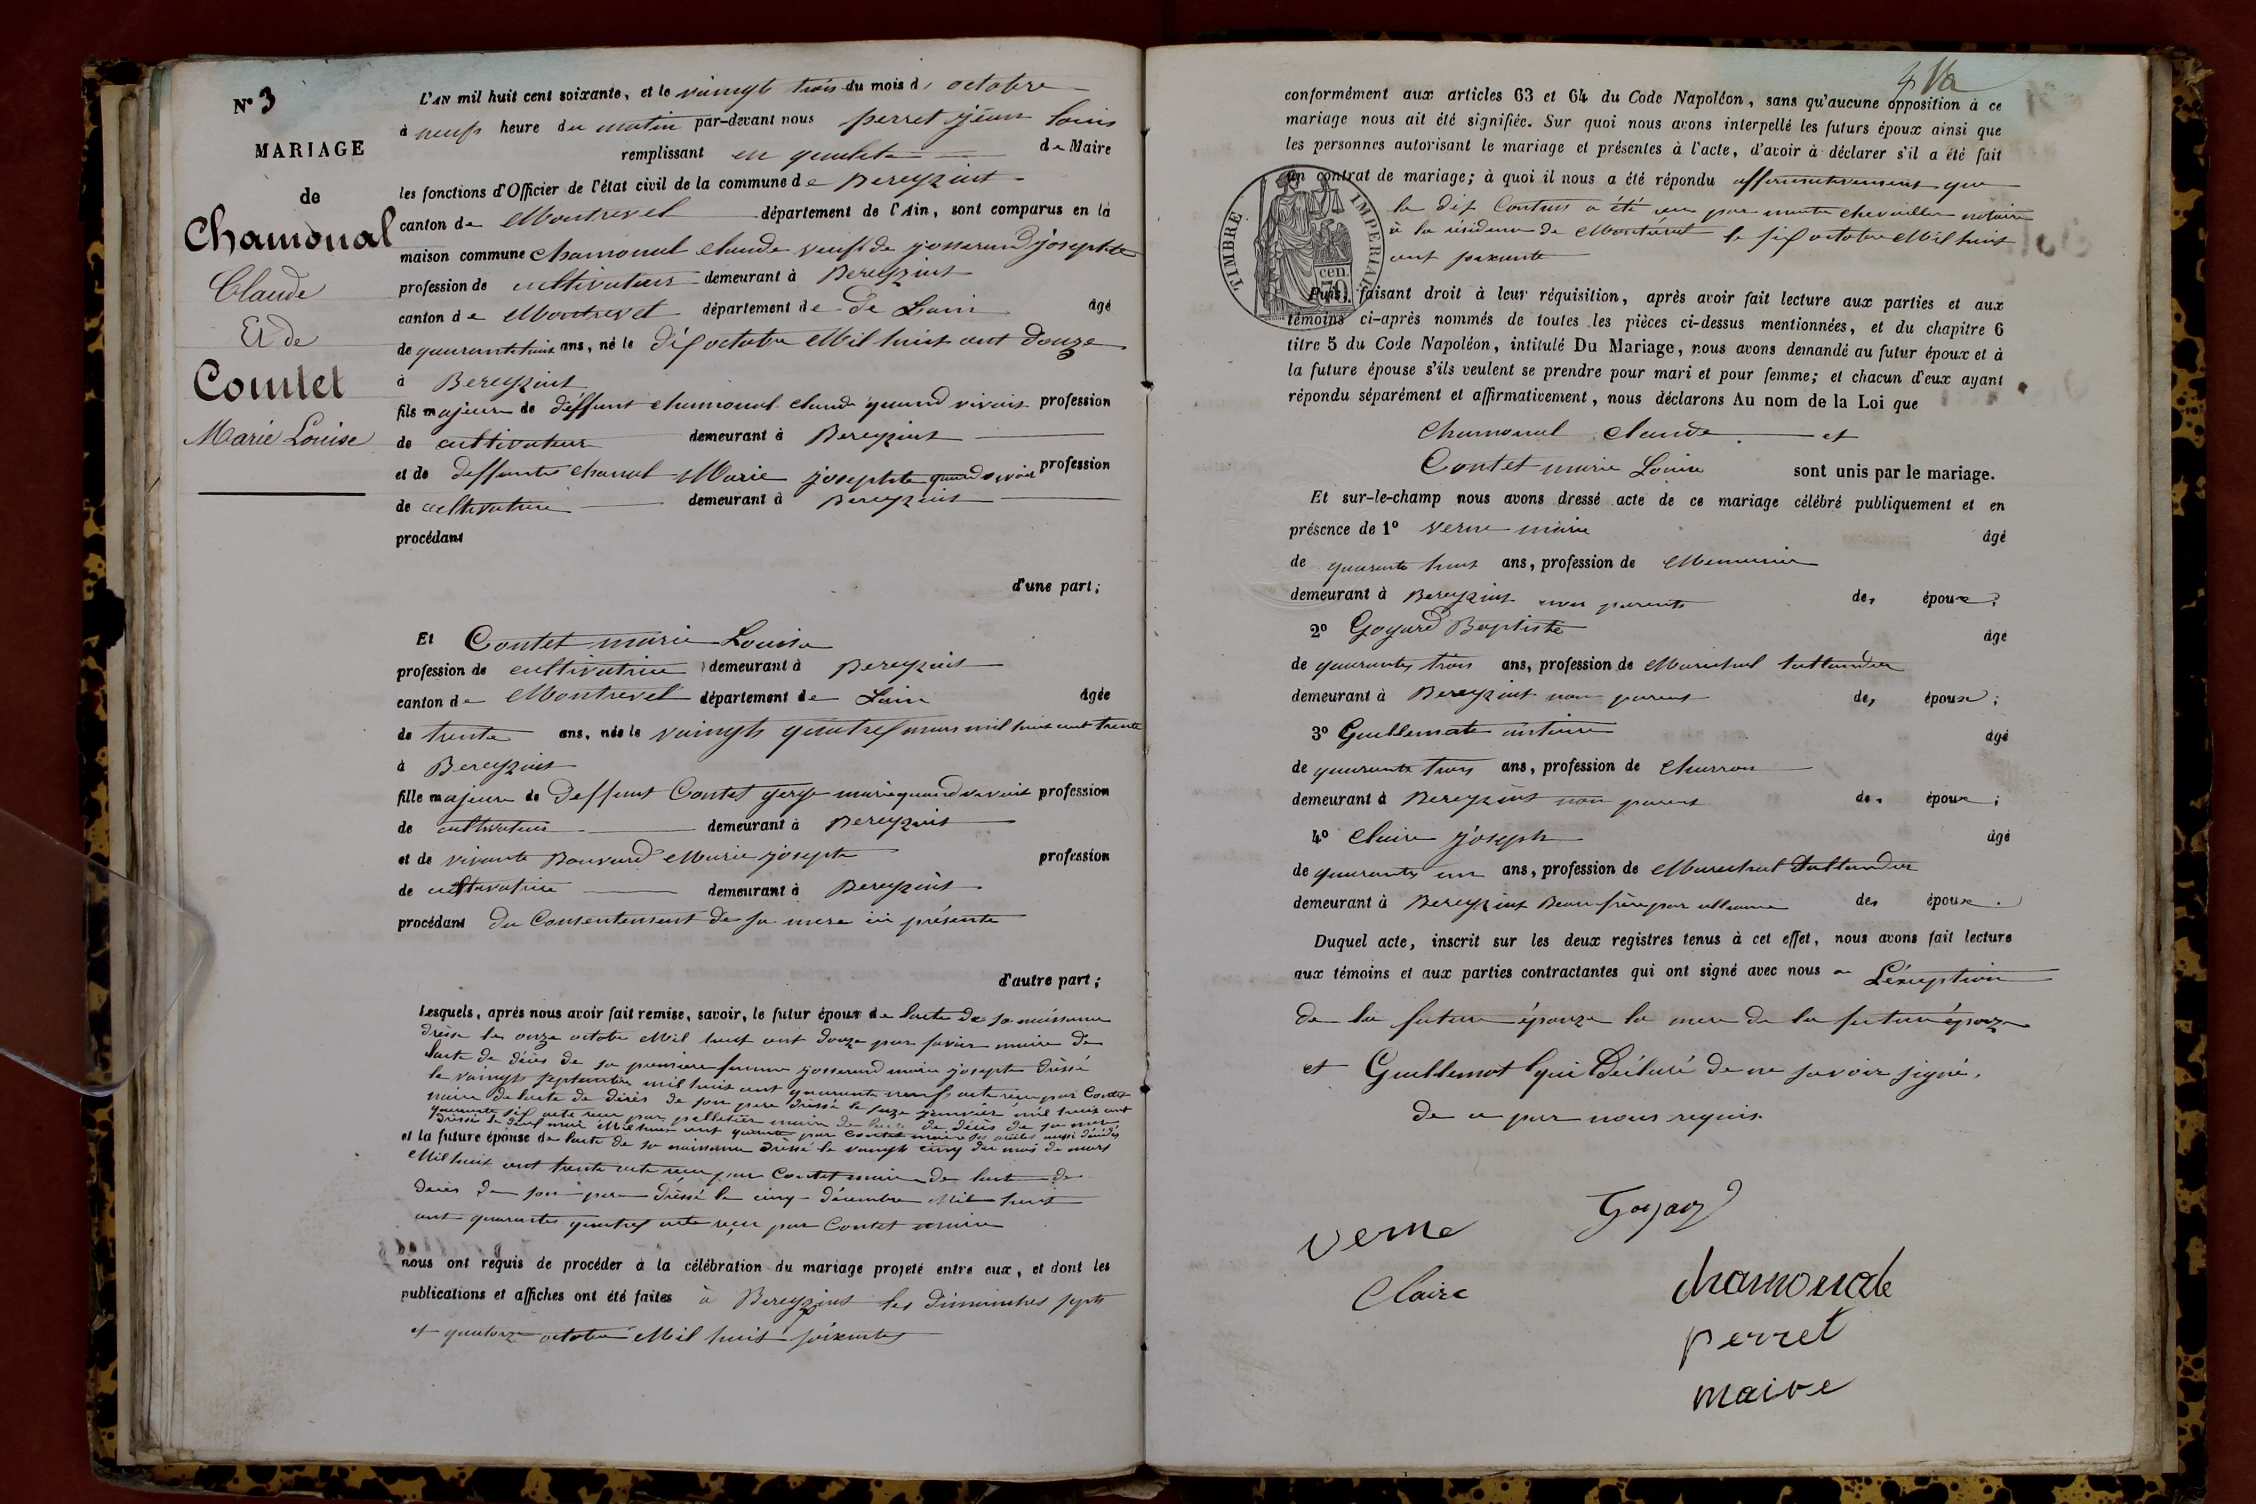 N° 3
MARIAGE
de
Chamonal
Claude
Et de
Contet
Marie Louise
L'AN mil huit cent soixante, et le vaingt trois du mois d' octobre
à neuf heure du matin par-devant nous perret jean louis
remplissant en qualité de Maire
les fonctions d'Officier de l'état civil de la commune de Bereyziat
canton de Montrevel département de l'Ain, sont comparus en la
maison commune Chamonal Claude veuf de josserand josephte
profession de cultivateur demeurant à Bereyziat
canton de Montrevel département de de Lain âgé
de quarante huit ans, né le dix octobre Mil huit cent douze
à Bereyziat
fils majeur de deffunt chamonal claude quand vivait profession
de cultivateur demeurant à Bereyziat
et de deffunte chanal Marie josephte quand vivait profession
de cultivatrice demeurant à Bereyziat
procédant
d'une part;
Et Contet marie Louise
profession de cultivatrice demeurant à Bereyziat
canton de Montrevel département de Lain âgée
de trente ans, née le vaingt quatre mars mil huit cent trente
à Bereyziat
fille majeure de deffunt Contet marie quand vivait profession
de cultivateur demeurant à Bereyziat
et de vivante Bouvard Marie josephte profession
de cultivatrice demeurant à Bereyziat
procédant du Consentement de sa mere ici présente
d'autre part;
Lesquels, après nous avoir fait remise, savoir, le futur époux de lacte de sa naissance
dressé le onze octobre Mil huit cent douze par maire de
lacte de décès de sa premiere femme josserand marie josephte dressé
le vaingt septembre mil huit cent quarante neuf acte reçu par Contet
maire de lacte de décès de son pere dressé le janvier mil huit cent
quarante six acte reçu par pelletier maire de lacte de décès de sa mere
dressé le mai Mil huit cent quarante par Contet maire aussi décédés
et la future épouse de lacte de sa naissance dressé le vaingt cinq du mois de mars
Mil huit cent trente acte reçu par Contet maire de lacte de
décès de son pere dressé le cinq décembre Mil huit
cent quarante quatre acte reçu par Contet maire
nous ont requis de procéder à la célébration du mariage projeté entre eux, et dont les
publications et affiches ont été faites à Bereyziat les dimanches sept
et quatorze octobre Mil huit soixante
conformément aux articles 63 et 64 du Code Napoléon, sans qu'aucune opposition à ce
mariage nous ait été signifiée. Sur quoi nous avons interpellé les futurs époux ainsi que
les personnes autorisant le mariage et présentes à l'acte, d'avoir à déclarer s'il a été fait
un contrat de mariage; à quoi il nous a été répondu affirmativement que
le dit Contrat a été reçu par maitre chevallier notaire
à la résidence de Montrevel le six octobre Mil huit
cent soixante
TIMBRE IMPERIAL
cen.
Puis, faisant droit à leur réquisition, après avoir fait lecture aux parties et aux
témoins ci-après nommés de toutes les pièces ci-dessus mentionnées, et du chapitre 6
titre 5 du Code Napoléon, intitulé Du Mariage, nous avons demandé au futur époux et à
la future épouse s'ils veulent se prendre pour mari et pour femme; et chacun d'eux ayant
répondu séparément et affirmativement, nous déclarons Au nom de la Loi que
Chamonal claude et
Contet marie Louise sont unis par le mariage.
Et sur-le-champ nous avons dressé acte de ce mariage célébré publiquement et en
présence de 1° Verne âgé
de quarante huit ans, profession de Menuisier
demeurant à Bereyziat non parent des époux;
2° Goyard Baptiste âgé
de quarante trois ans, profession de Marechal tallandier
demeurant à Bereyziat non parent des époux;
3° Guillemot antoine âgé
de quarante trois ans, profession de Charron
demeurant à Bereyziat non parent des époux;
4° Claire joseph âgé
de quarante un ans, profession de Marechal Tallandier
demeurant à Bereyziat Beau frère par alliance des époux.
Duquel acte, inscrit sur les deux registres tenus à cet effet, nous avons fait lecture
aux témoins et aux parties contractantes qui ont signé avec nous a Léxeption
de la future épouze la mere de la future épouze
et Guillemot qui déclaré de ne savoir signé,
de ce par nous requis.
Verne Goyard
Claire chamonale
perret
maire